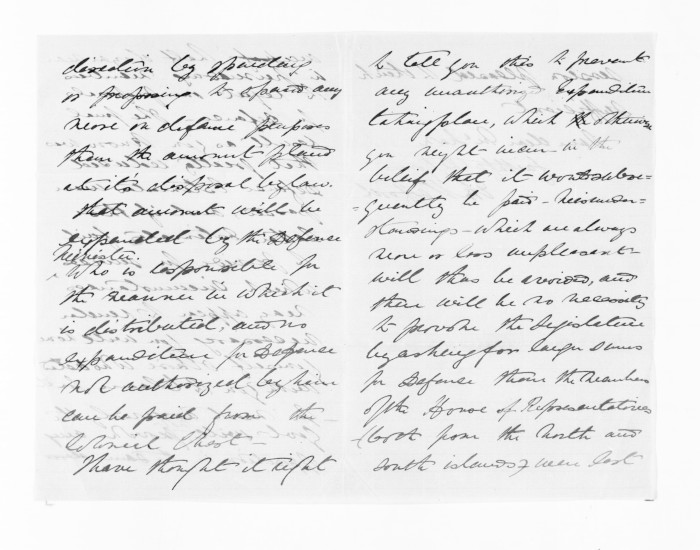 direction by spending
or proposing to spend, any
more on defence purposes
than the amount placed
at it's disposal by law.
That amount will be
expended by the Defence
Minister.
Who is responsible for
the manner in which it
is distributed; and no
expenditure for Defence
not authorized by him
can be paid from the
Colonial Chest -
I have thought it right
to tell you this to prevent
any unauthorized expenditure
taking place, which otherwise
you might incur in the
belief that it would subse=
=quently be paid - misunder=
=standings - which are always
more or less unpleasant -
will thus be avoided, and
there will be no necessity
to provoke the Legislature
by asking for larger sums
for Defence than the members
of the House of Representatives
(both from the North and
South islands) were last